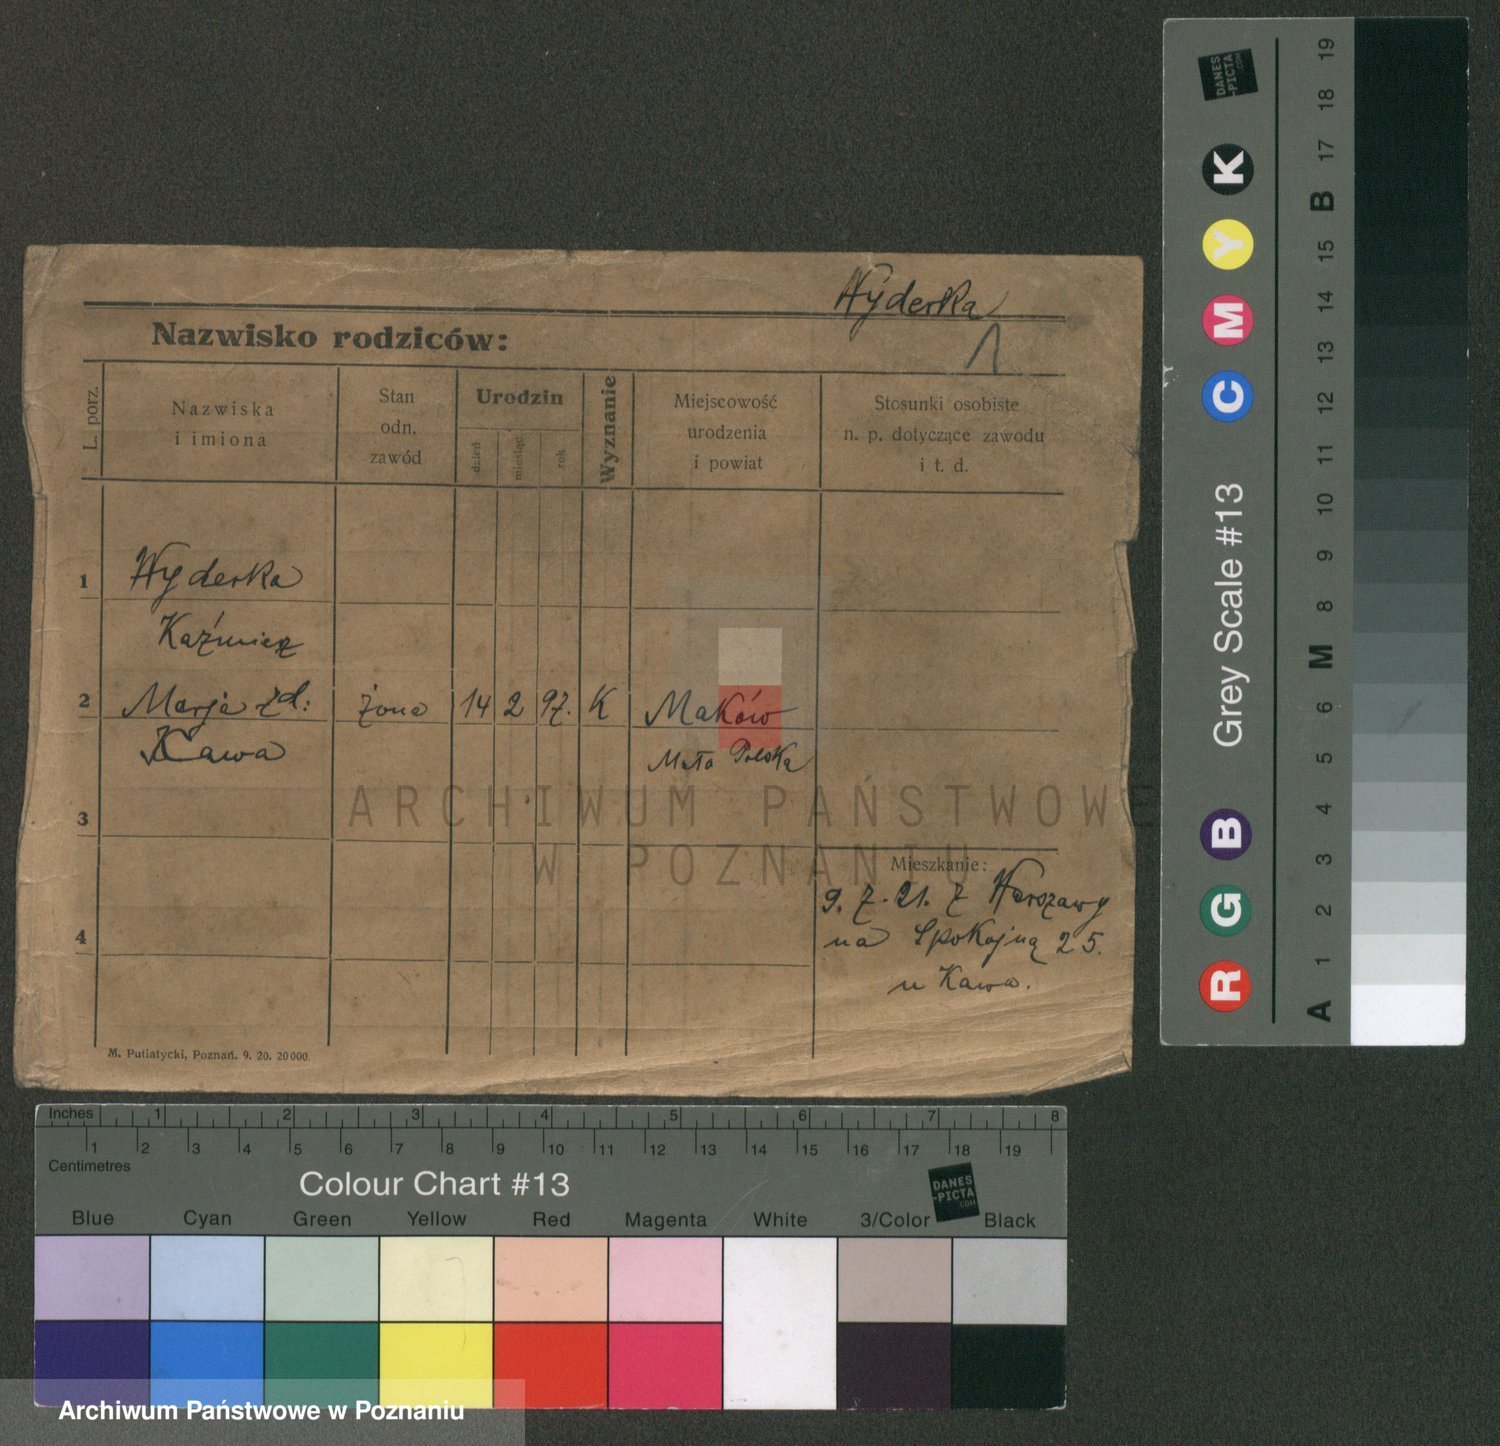 Wyderka
1
Nazwisko rodziców:
L. porz.
Nazwiska
i imiona
Stan
odn.
zawód
Urodzin
dzień
miesiąc
rok
Wyznanie
Miejscowość
urodzenia
i powiat
Stosunki osobiste
n. p. dotyczące zawodu
i t. d.
1
Wyderka
Kaźmierz
2
Marja zd:
żona
14
2
97.
K
Maków
Kawa
Mało Polska
3
4
Mieszkanie:
9. 7. 21. z Warszawy
na Spokojną 25.
u Kawa.
M. Putiatycki, Poznań. 9. 20. 20000.
ARCHIWUM PAŃSTWOWE
W POZNANIU
Inches 1 2 3 4 5 6 7 8
1 2 3 4 5 6 7 8 9 10 11 12 13 14 15 16 17 18 19
Centimetres
Colour Chart #13
DANES
-PICTA
.COM
Blue Cyan Green Yellow Red Magenta White 3/Color Black
Archiwum Państwowe w Poznaniu
DANES
-PICTA
.COM
R G B Grey Scale #13 C M Y K
A 1 2 3 4 5 6 M 8 9 10 11 12 13 14 15 B 17 18 19